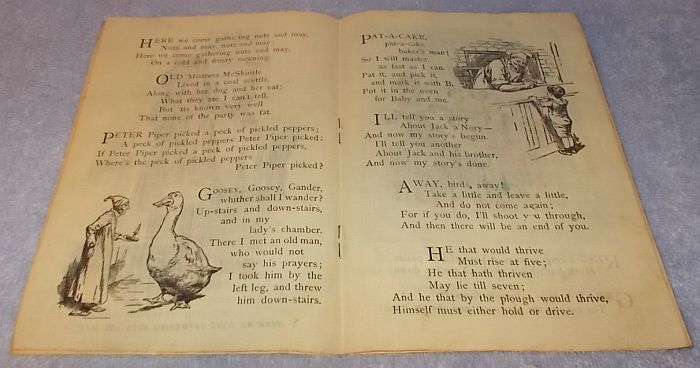 HERE we come gathering nuts and may,
Nuts and may, nuts and may;
Here we come gathering nuts and may,
On a cold and frosty morning.
OLD Mistress McShuttle
Lived in a coal scuttle,
Along with her dog and her cat;
What they ate I can't tell,
But 'tis known very well
That none of the party was fat.
PETER Piper picked a peck of pickled peppers;
A peck of pickled peppers Peter Piper picked;
If Peter Piper picked a peck of pickled peppers,
Where's the peck of pickled peppers
Peter Piper picked?
GOOSEY, Goosey, Gander,
whither shall I wander?
Up-stairs and down-stairs,
and in my
lady's chamber.
There I met an old man,
who would not
say his prayers;
I took him by the
left leg, and threw
him down-stairs.
PAT-A-CAKE,
pat-a-cake,
baker's man!
So I will master,
as fast as I can.
Pat it, and pick it,
and mark it with B,
Put it in the oven
for Baby and me.
I'LL tell you a story
About Jack a'Nory—
And now my story's begun.
I'll tell you another
About Jack and his brother,
And now my story's done.
AWAY, birds, away!
Take a little and leave a little,
And do not come again;
For if you do, I'll shoot you through,
And then there will be an end of you.
HE that would thrive
Must rise at five;
He that hath thriven
May lie till seven;
And he that by the plough would thrive,
Himself must either hold or drive.